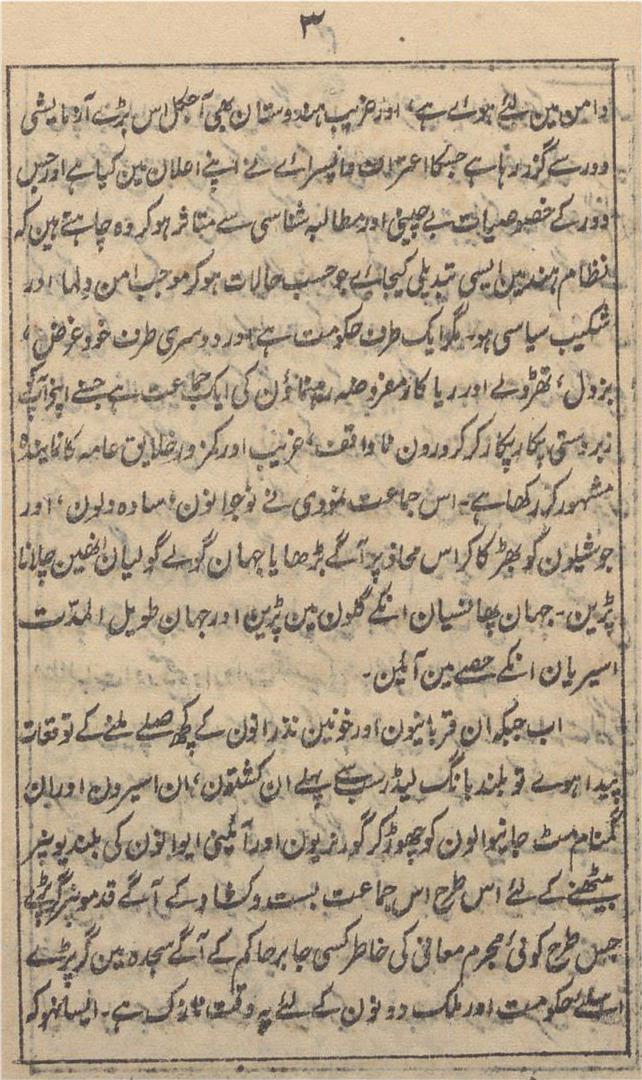 ۳
دامن مین لئے ہوے ہے، اور غریب ہندوستان بھی آجکل اس بڑے آزمایشی
دور سے گزر رہا ہے جسکا اعتراف وایسراے نے اپنے اعلان مین کیا ہے اور جس
دور کے خصوصیات بے چینی اور مطالبہ شناسی سے متاثر ہوکر وہ چاہتے ہین کہ
نظام ہند مین ایسی تبدیلی کیجاے جو حسب حالات ہوکر موجب امن ولما اور
شکیب سیاسی ہو۔ مگر ایک طرف حکومت ہے اور دوسری طرف خود غرض،
بزدل، تھڑدلے اور ریا کار مفروضہ رہنماؤن کی ایک جماعت ہے جسنے اپنے آپ کو
زبردستی پکار پکار کر کرورون ناواقف، غریب اور کمزور خلایق عامہ کا نمایندہ
مشہور کر رکھا ہے۔ اس جماعت نے نوجوانون، سادہ دلون، اور
جوشیلون کو بھڑکا کر اس محاذ پر آگے بڑھایا جہان گولے گولیان انھین چلانا
پڑین۔ جہان پھانسیان انکے گلون مین پڑین اور جہان طویل المدّت
اسیریان انکے حصے مین آئین۔
اب جبکہ ان قربانیون اور خونین نذرانون کے کچھ صلے ملنے کے توقعات
پیدا ہوے تو بلند بانگ لیڈر سب سے پہلے ان کشتون، ان اسیرون اور ان
گمنام مٹ جانیوالون کو چھوڑ کر گورنریون اور آئینی ایوانون کی بلندیونپر
بیٹھنے کے لئے اس طرح اس جماعت بست وکشاد کے آگے قدمونپر گر پڑے
جس طرح کوئی مجرم معافی کی خاطر کسی جابر حاکم کے آگے سجدہ مین گر پڑے
اسلئے حکومت اور ملک دونون کے لئے یہ وقت نازک ہے۔ ایسا نہو کہ